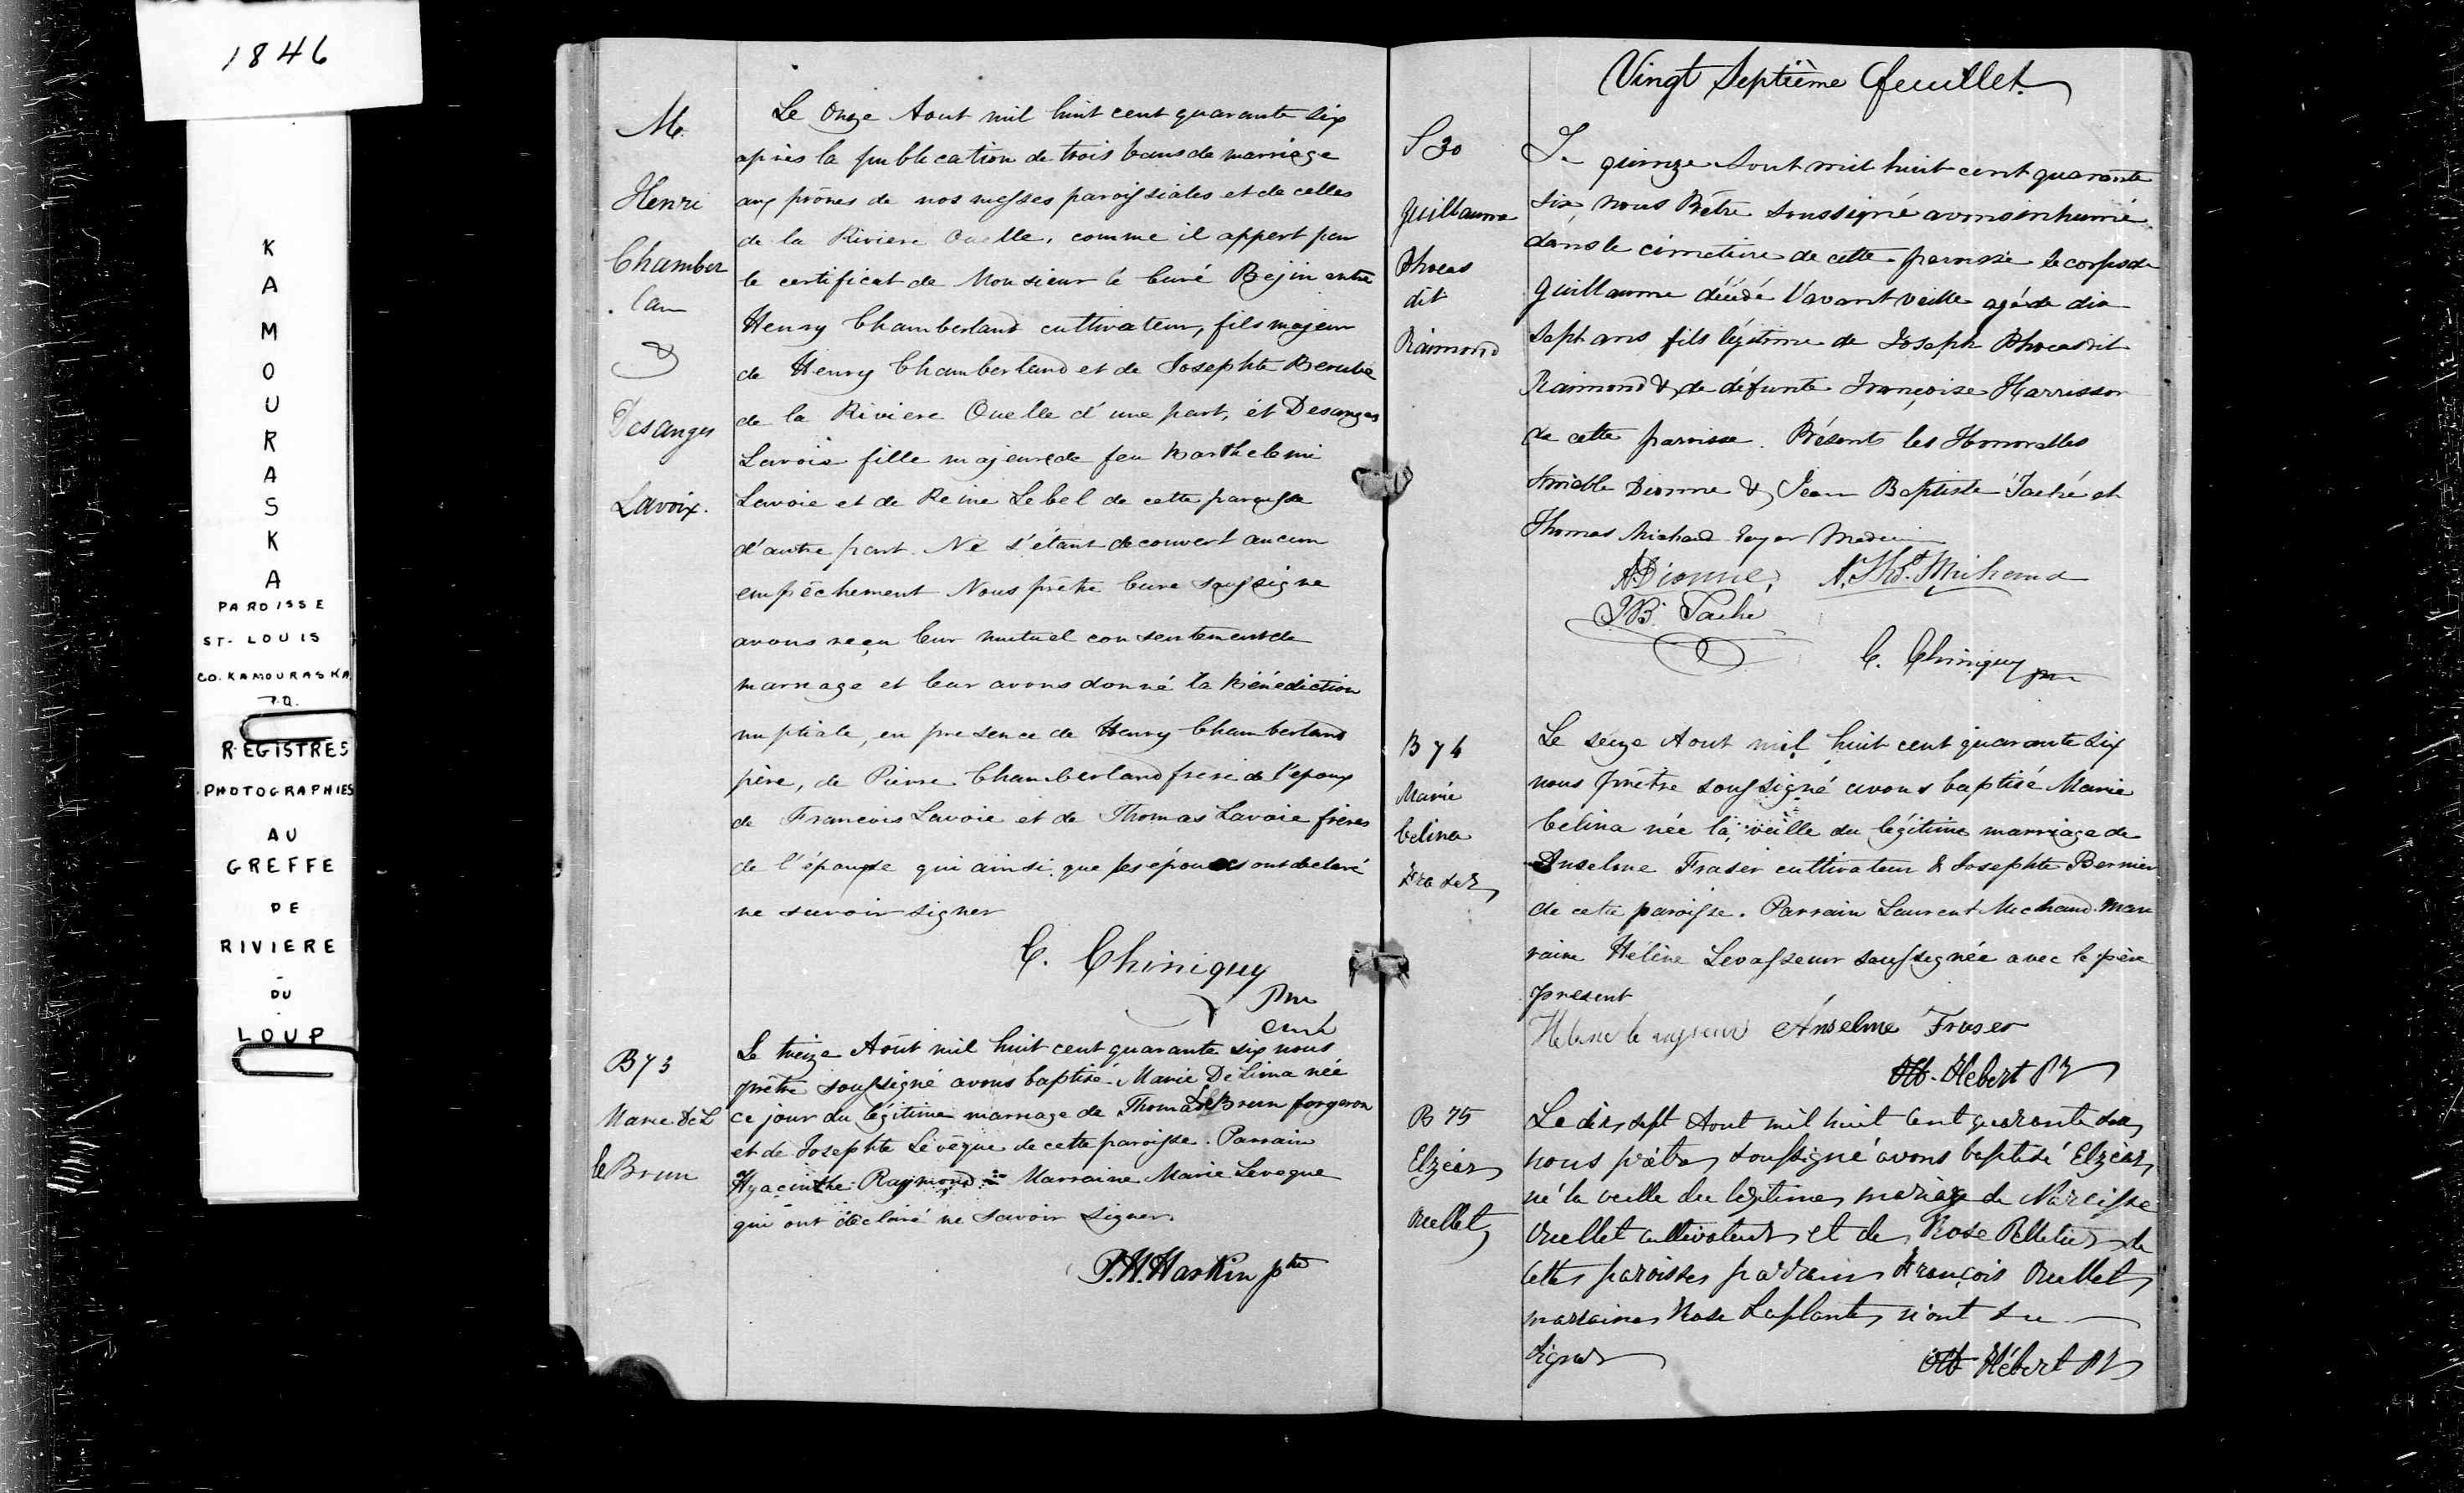 1846
KAMOURASKA
PAROISSE
ST-LOUIS
CO. KAMOURASKA
P.Q.
REGISTRES
PHOTOGRAPHIES
AU
GREFFE
DE
RIVIERE
-
DU
LOUP
M.
Henri
Chamber
lan
&
Desanges
Lavoix.
Le Onze Aout mil huit cent quarante six
après la publication de trois bans de marriage
aux prônes de nos messes paroissiales et de celles
de la Riviere Ouelle, comme il appert par
le certificat de Monsieur le Curé Bejin entre
Henry Chamberland cultivateur, fils majeur
de Henry Chamberland et de Josephte Berubé
de la Riviere Ouelle d'une part, et Desanges
Lavoie fille majeure de feu Barthelemi
Lavoie et de Reine Lebel de cette paroisse
d'autre part. Ne s'étant decouvert aucun
empêchement Nous prêtre Curé soussigne
avons reçu leur mutuel consentement de
marriage et leur avons donné la Bénédiction
nuptiale, en presence de Henry Chamberland
père, de Pierre Chamberland frère de l'epoux
de Francois Lavoie et de Thomas Lavoie frères
de l'épouse qui ainsi que les épouses ont declaré
ne savoir signer
C. Chiniquy
Ptre
curé
B 73
Marie Del
le Brun
Le treize Août mil huit cent quarante six nous
prêtre soussigné avons baptisé Marie De Lima née
ce jour du légitime mariage de Thomas LeBrun forgeron
et de Josephte Levêque de cette paroisse. Parrain
Hyacinthe Raymond Marraine Marie Leveque
qui ont déclaré ne savoir signer.
P.H. Harkin ptre
Vingt Septième feuillet
S 30
Guillaume
Phocas
dit
Raimond
Le quinze Aout mil huit cent quarante
six, nous Prêtre soussigné avons inhumé
dans le cimetière de cette paroisse le corps de
Guillaume décédé l'avant veille agé de dix
sept ans fils légitime de Joseph Phocas dit
Raimond & de défunte Françoise Harrisson
de cette paroisse. Présents les Honorables
Amable Dionne & Jean Baptiste Taché et
Thomas Michaud Medecin
A. Dionne, Ths. Michaud
J.B. Taché
C. Chiniquy ptre
B 74
Marie
Celina
Fraser
Le seize Aout mil huit cent quarante Six
nous Prêtre soussigné avons baptisé Marie
Celina née la veille du légitime marriage de
Anselme Fraser cultivateur & Josephte Bernier
de cette paroisse. Parrain Laurent Michaud Mar
raine Hélène Levasseur soussignée avec le père
present
Helene le vasseur Anselme Fraser
Hebert Ptr
B 75
Elzéar
Ouellet
Le dix sept Aout mil huit cent quarante six
nous prêtre soussigné avons baptisé Elzéar,
né la veille du legitime mariage de Narcisse
Ouellet cultivateur et de Rose Pelletier de
cette paroisse parrain François Ouellet
marraine Rose Laplante n'ont su
Signer
Hébert Ptr